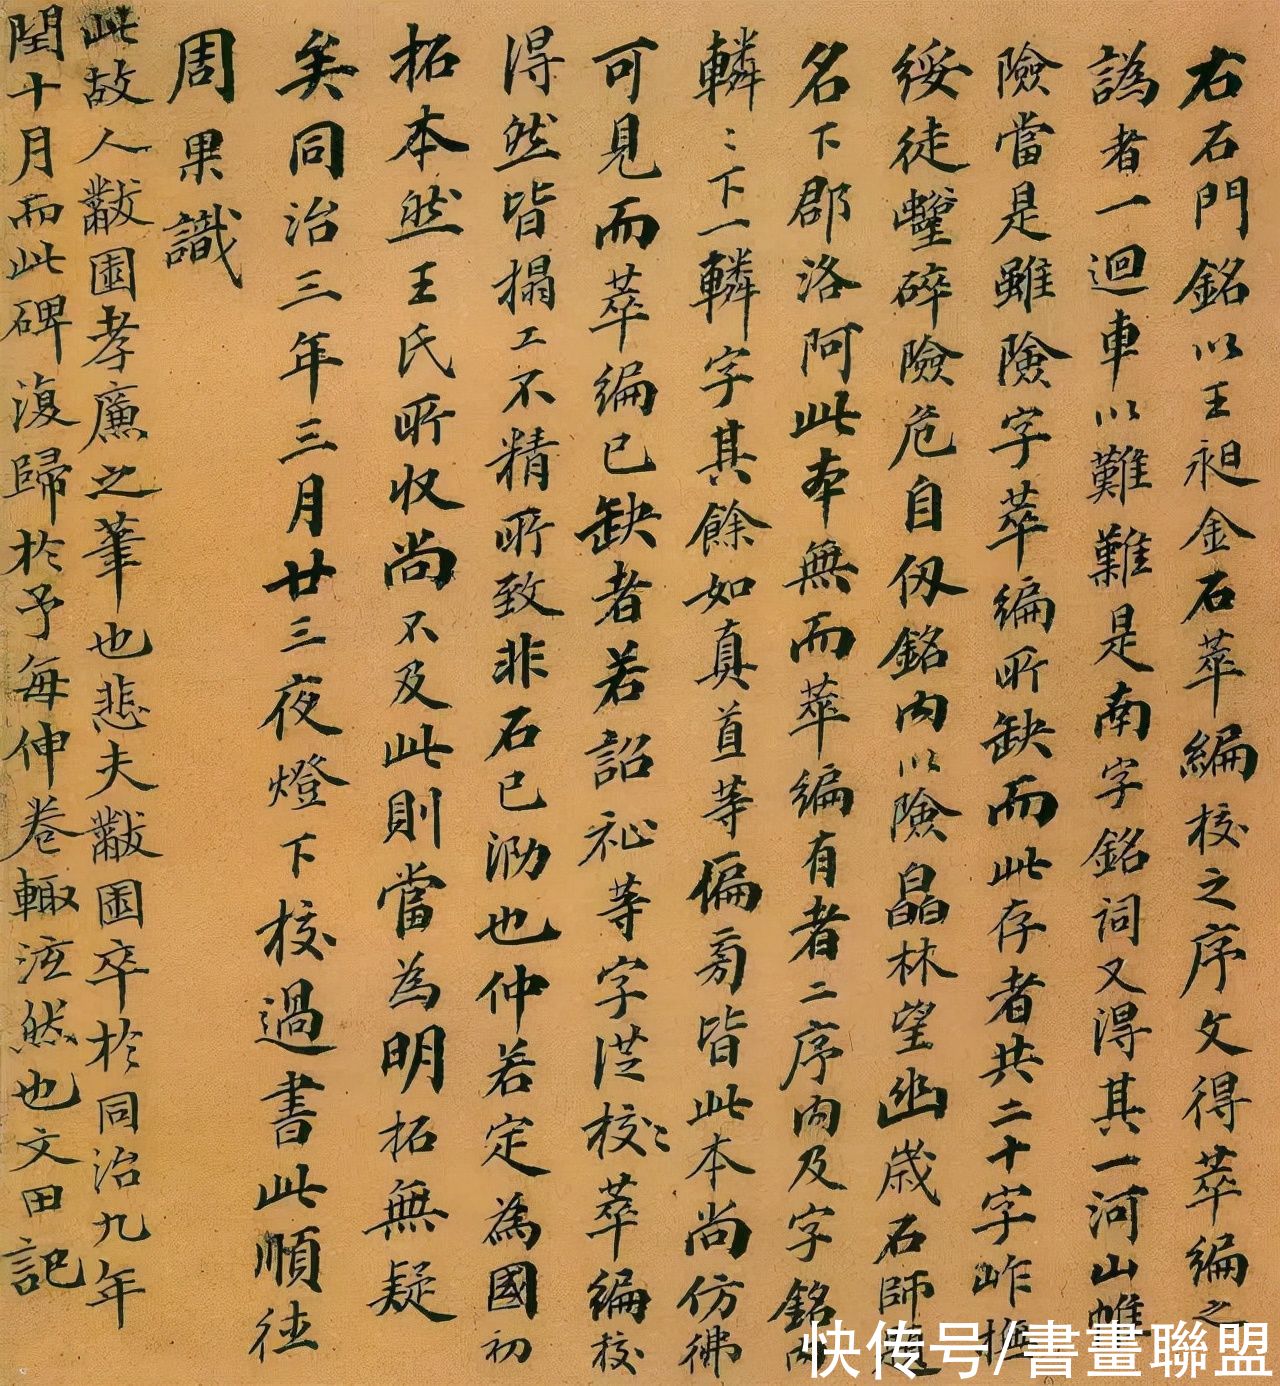 右石門銘以王昶金石萃編校之序文得萃編之
譌者一迴車以難難是南字銘詞又得其一河山雖
險當是雖險字萃編所缺而此存者共二十字岞
綏徒壍碎險危自伋銘内以險皛林望幽歲石師
名下郡洛阿此夲無而萃編有者二序内及字銘内
轔〻下一轔字其餘如真首等偏旁皆此本尚仿彿
可見而萃編已缺者若詔祉等字從校〻萃編校
得然皆搨工不精所致非石已泐也仲若定為國初
拓本然王氏所收尚不及此則當為明拓無疑
矣同治三年三月廿三夜燈下校過書此順德
周果識
此故人黻園孝廉之筆也悲夫黻園卒於同治九年
閏十月而此碑復歸於予每伸卷輙泫然也文田記
快传号/書畫聯盟